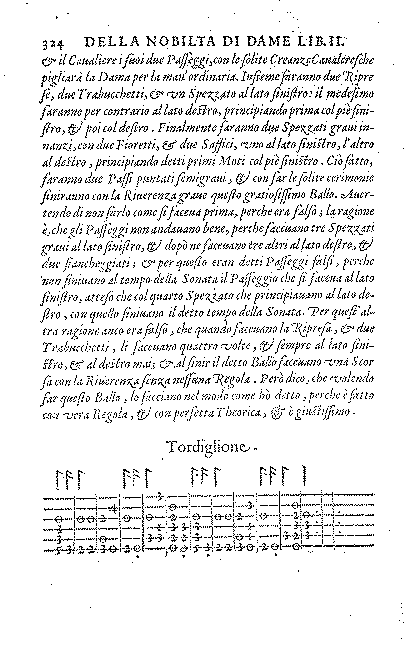 324 DELLA NOBILTA DI DAME LIB.II.
& il Caualiere i suoi due Passeggi, con le solite Creanze Caualeresche
pigliarà la Dama per la man' ordinaria. Insieme faranno due Ripre
se, due Trabucchetti, & vn Spezzato al lato sinistro: il medesimo
faranno per contrario al lato destro, principiando prima col piè sini-
stro, & poi col destro. Finalmente faranno due Spezzati graui in-
nanzi, con due Fioretti, & due Saffici, vno al lato sinistro, l'altro
al destro, principiando detti primi Moti col piè sinistro. Ciò fatto,
faranno due Passi puntati semigraui, & con far le solite cerimonie
finiranno con la Riuerenza graue questo gratiosissimo Ballo. Auer-
tendo di non farlo come si faceua prima, perche era falso; la ragione
è, che gli Passeggi non andauano bene, perche faceuano tre Spezzati
graui al lato sinistro, & dopò ne faceuano tre altri al lato destro, &
due fiancheggiati; & per questo eran detti Passeggi falsi, perche
non finiuano al tempo della Sonata il Passeggio che si facea al lato
sinistro, atteso che col quarto Spezzato che principiauano al lato de-
stro, con quello finiuano il detto tempo della Sonata. Per quest' al-
tra ragione anco era falso, che quando faceuano la Ripresa, & due
Trabucchetti, li faceuano quattro volte, & sempre al lato sini-
stro, & al destro mai; & al finir il detto Ballo faceuano vna Scor
sa con la Riuerenza senza nessuna Regola. Però dico, che volendo
far questo Ballo, lo facciano nel modo come hò detto, perche è fatto
con vera Regola, & con perfetta Theorica, & è giustissimo.
Tordiglione.